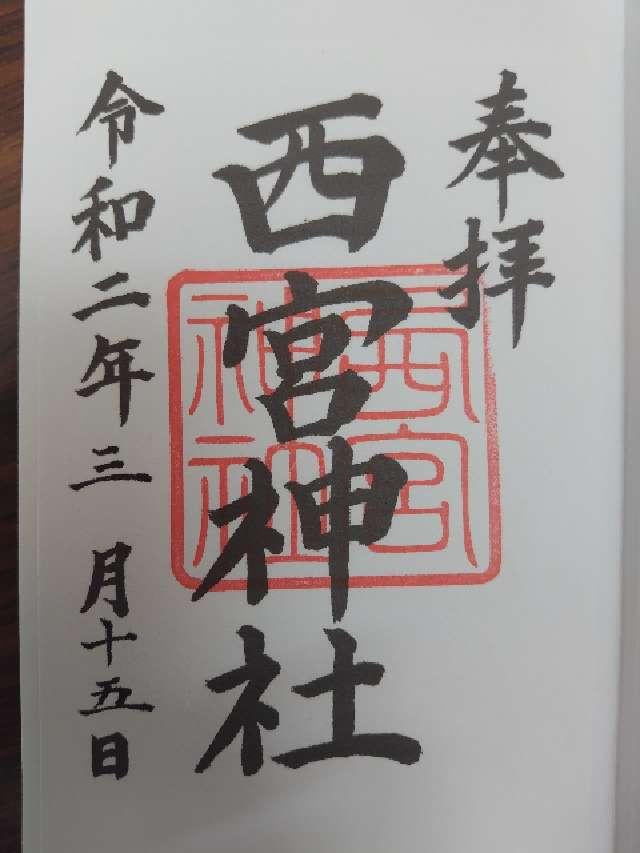 奉拝
西宮神社
西宮
神社
令和二年三月十五日